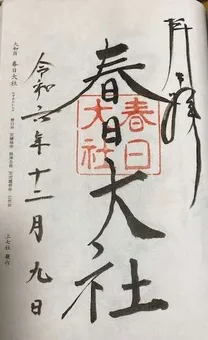 奉拝
春日大社
春日
大社
令和六年十二月九日
大和国 春日大社